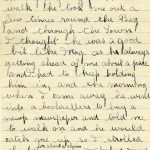 walk. He took me out a
few times round the Bay
and through the Town.
I thought he was a good
bit of a Mag as he always
getting ahead of me about a pace
and I had to keep holding
him in, and the morning
when I came away he went
into a booksellers to buy a
news newspaper and told me
to walk on and he would
catch me up so I strolled